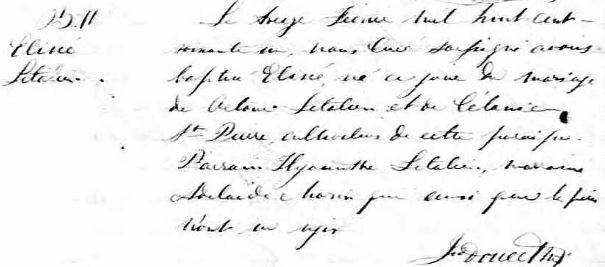 B. 11
Elisée
Letalien.
Le treize Février mil huit cent
soixante un, nous Curé soussigné avons
baptisé Elisé, né ce jour du mariage
de Octave Letalien et de Célanie
St Pierre, cultivateurs de cette paroisse.
Parrain Hyacinthe Letalien, marraine
Adelaide Morin qui ainsi que le père
n'ont su signer
Jos Doucet Ptre